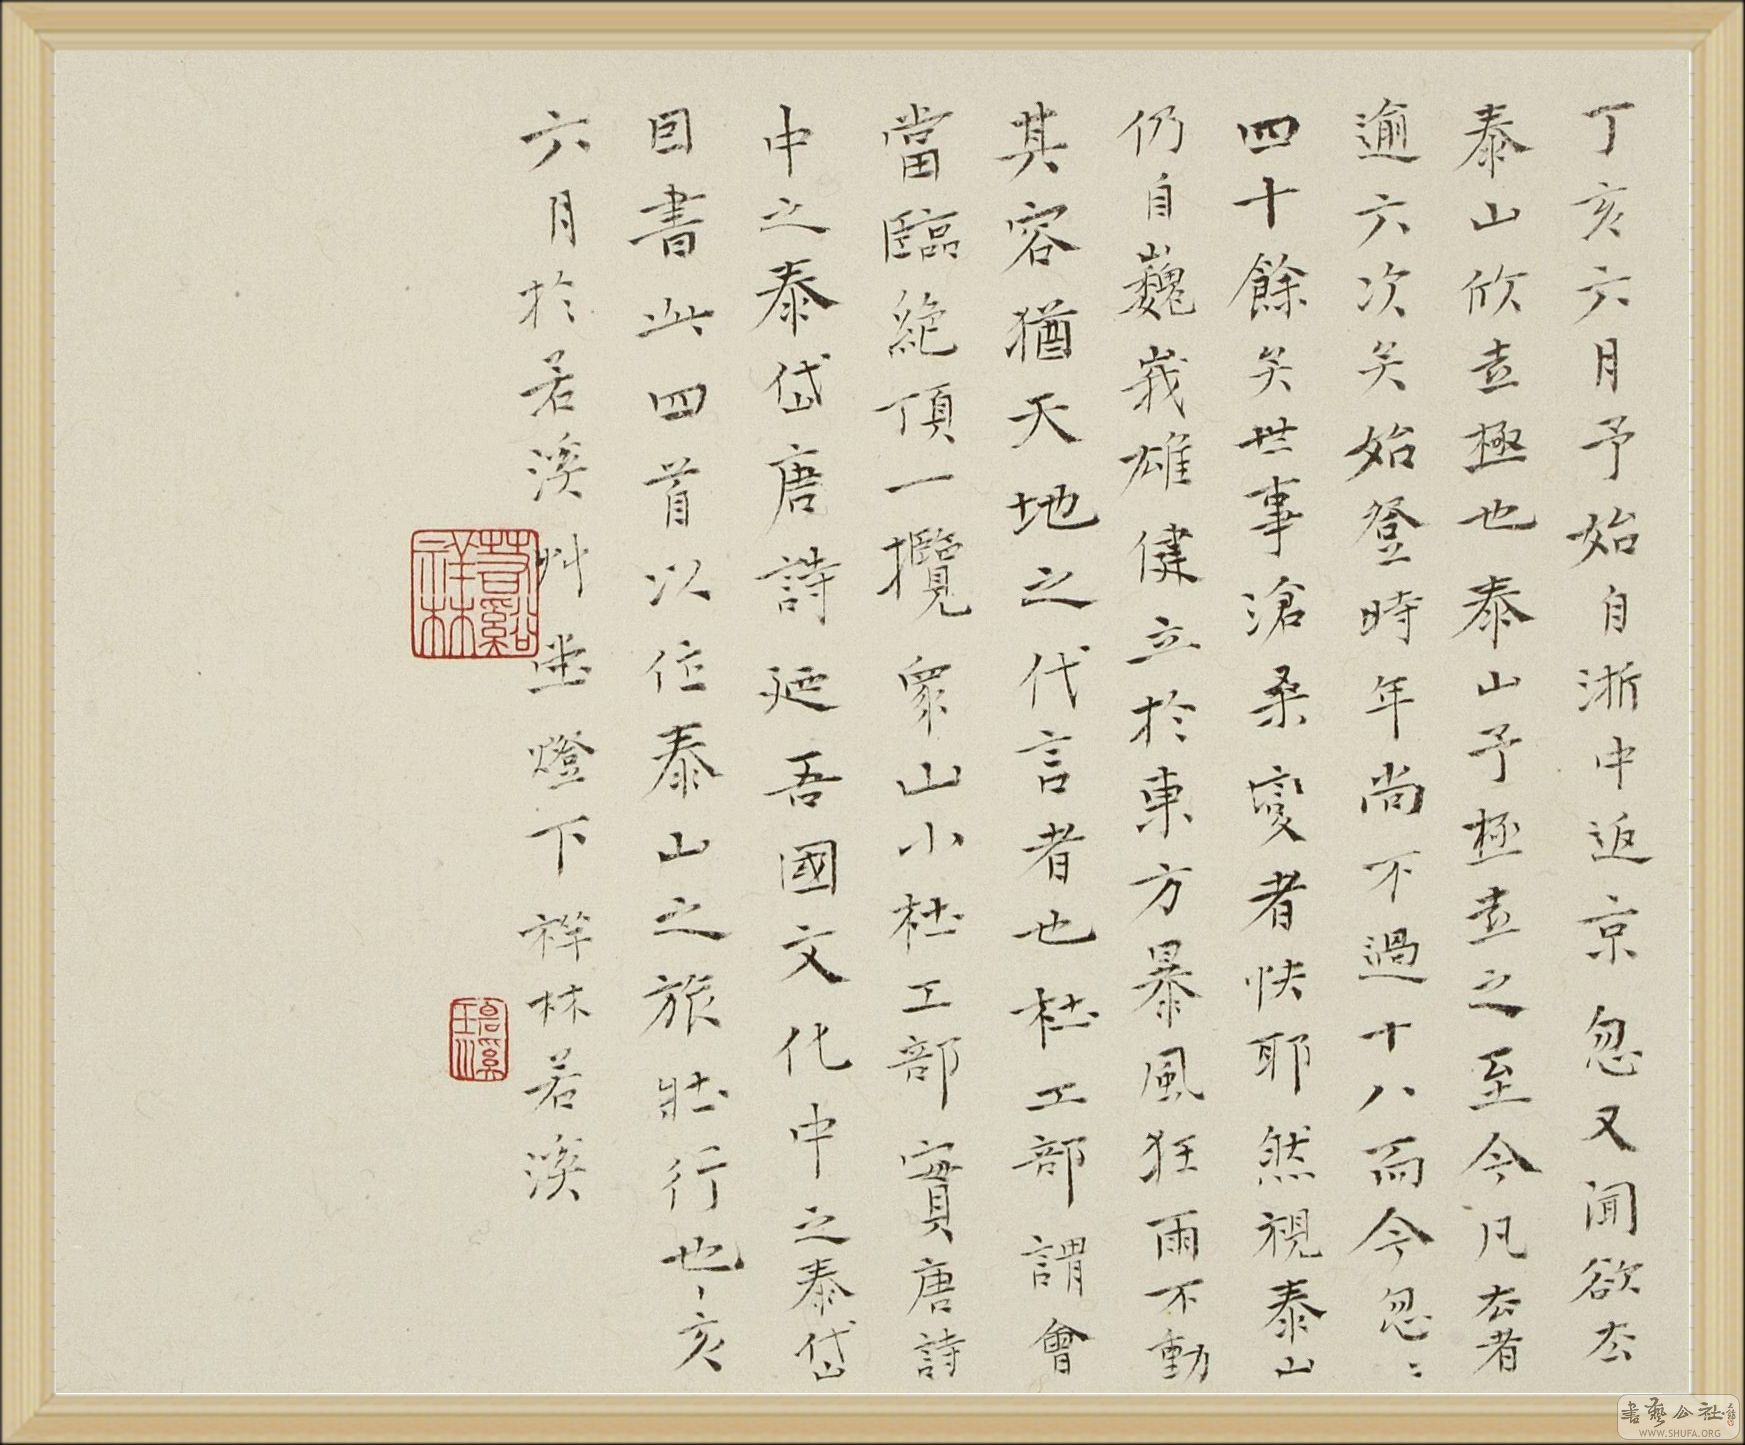 丁亥六月予始自浙中返京忽又闻欲去
泰山欣喜極也泰山予極喜之至今凡去者
逾六次矣始登時年尚不過十八而今忽〻
四十餘矣世事滄桑變者快耶然視泰山
仍自巍峩雄健立於東方暴風狂雨不動
其容猶天地之代言者也杜工部謂會
當臨絶頂一攬眾山小杜工部實唐詩
中之泰岱唐詩迺吾國文化中之泰岱
因書此四首以位泰山之旅壯行也丁亥
六月於若溪艸堂燈下祥林若溪
書藝公社
WWW.SHUFA.ORG